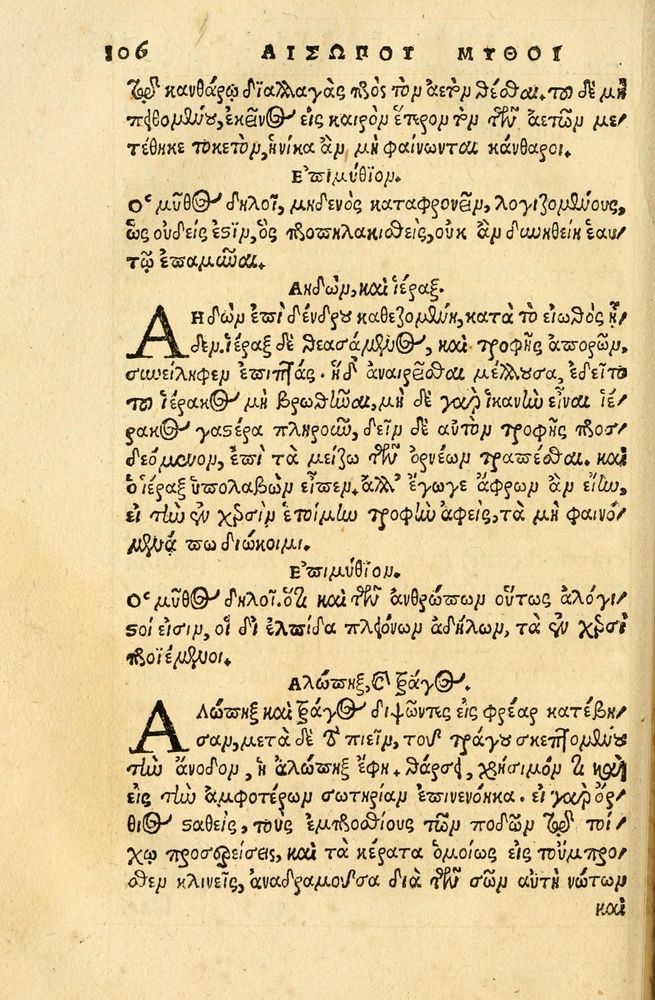 106 ΑΙΣΩΠΟΥ ΜΥΘΟΙ
τῷ κανθάρῳ διαλλαγὰς πρὸς τὸν ἀετὸν θέσθαι. τοῦ δὲ μὴ
πειθομένου, ἐκεῖνος εἰς καιρὸν ἕτερον τὸν τῶν ἀετῶν με/
τέθηκε τοκετὸν, ἡνίκα ἂν μὴ φαίνωνται κάνθαροι.
Επιμύθϊον.
Ο μῦθος δηλοῖ, μηδενὸς καταφρονεῖν, λογιζομένους,
ὡς οὐδείς ἐστὶν, ὃς προπηλακισθεὶς, οὐκ ἂν δυνηθείη ἑαυ/
τῷ ἐπαμῦναι.
Αηδὼν, καὶ ἱέραξ.
ΑΗδὼν ἐπὶ δένδρου καθεζομένη, κατὰ τὸ εἰωθὸς ᾖ/
δεν. ἱέραξ δὲ θεασάμενος, καὶ τροφῆς ἀπορῶν,
συνείληφεν ἐπιπτάς. ἡ δ' ἀναιρεῖσθαι μέλλουσα, ἐδεῖτο
τοῦ ἱέρακος μὴ βρωθῆναι, μὴ δὲ γὰρ ἱκανὴν εἶναι ἱέ/
ρακος γαστέρα πληροῦν, δεῖν δὲ αὐτὸν τροφῆς προσ/
δεόμενον, ἐπὶ τὰ μείζω τῶν ὀρνέων τραπέσθαι. καὶ
ὁ ἱέραξ ὑπολαβὼν εἶπεν. ἀλλ' ἔγωγε ἄφρων ἂν εἴην,
εἰ τὴν ἐν χερσὶν ἑτοίμην τροφὴν ἀφεὶς, τὰ μὴ φαινό/
μενά πω διώκοιμι.
Επιμύθϊον.
Ο μῦθος δηλοῖ. ὅτι καὶ τῶν ἀνθρώπων οὕτως ἀλόγι/
στοί εἰσιν, οἳ δι' ἐλπίδα πλειόνων ἀδήλων, τὰ ἐν χερσὶ
προϊέμενοι.
Αλώπηξ, καὶ τράγος.
ΑΛώπηξ καὶ τράγος διψῶντες εἰς φρέαρ κατέβη/
σαν, μετὰ δὲ τὸ πιεῖν, τοῦ τράγου σκεπτομένου
τὴν ἄνοδον, ἡ ἀλώπηξ ἔφη. θάρσει, χρήσιμόν τι καὶ
εἰς τὴν ἀμφοτέρων σωτηρίαν ἐπινενόηκα. εἰ γὰρ ὄρ/
θιος σταθεὶς, τοὺς ἐμπροσθίους τῶν ποδῶν τῷ τοί/
χῳ προσερείσεις, καὶ τὰ κέρατα ὁμοίως εἰς τοὔμπρο/
σθεν κλινεῖς, ἀναδραμοῦσα διὰ τῶν σῶν αὐτὴ νώτων
καὶ